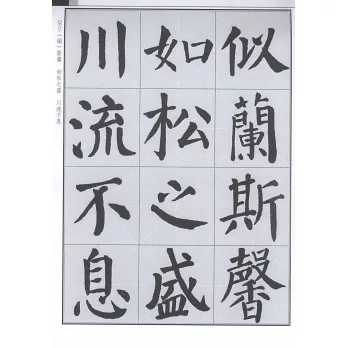 似蘭斯馨
如松之盛
川流不息
似兰（蘭）斯馨 如松之盛 川流不息